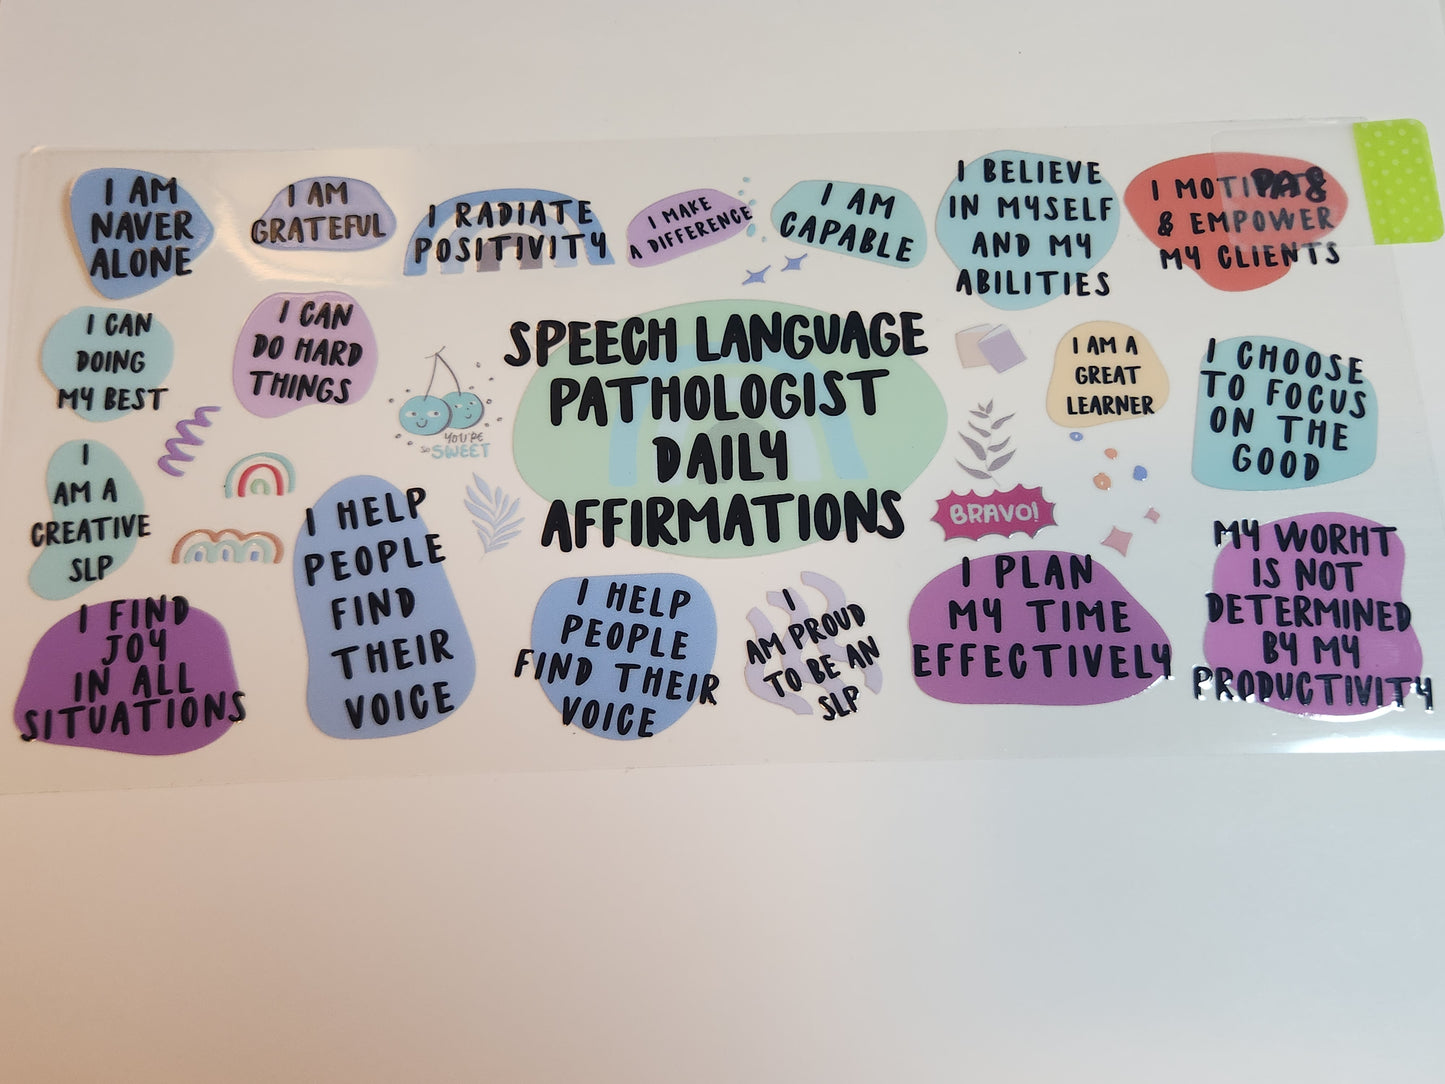 I AM
NAVER
ALONE
I AM
GRATEFUL
I RADIATE
POSITIVITY
I MAKE
A DIFFERENCE
I AM
CAPABLE
I BELIEVE
IN MYSELF
AND MY
ABILITIES
I
& EMPOWER
MY CLIENTS
I CAN
DOING
MY BEST
I CAN
DO HARD
THINGS
YOU'RE
SO SWEET
SPEECH LANGUAGE
PATHOLOGIST
DAILY
AFFIRMATIONS
I AM A
GREAT
LEARNER
I CHOOSE
TO FOCUS
ON THE
GOOD
I
AM A
CREATIVE
SLP
I HELP
PEOPLE
FIND
THEIR
VOICE
BRAVO!
I FIND
JOY
IN ALL
SITUATIONS
I HELP
PEOPLE
FIND THEIR
VOICE
I
AM PROUD
TO BE AN
SLP
I PLAN
MY TIME
EFFECTIVELY
MY WORHT
IS NOT
DETERMINED
BY MY
PRODUCTIVITY